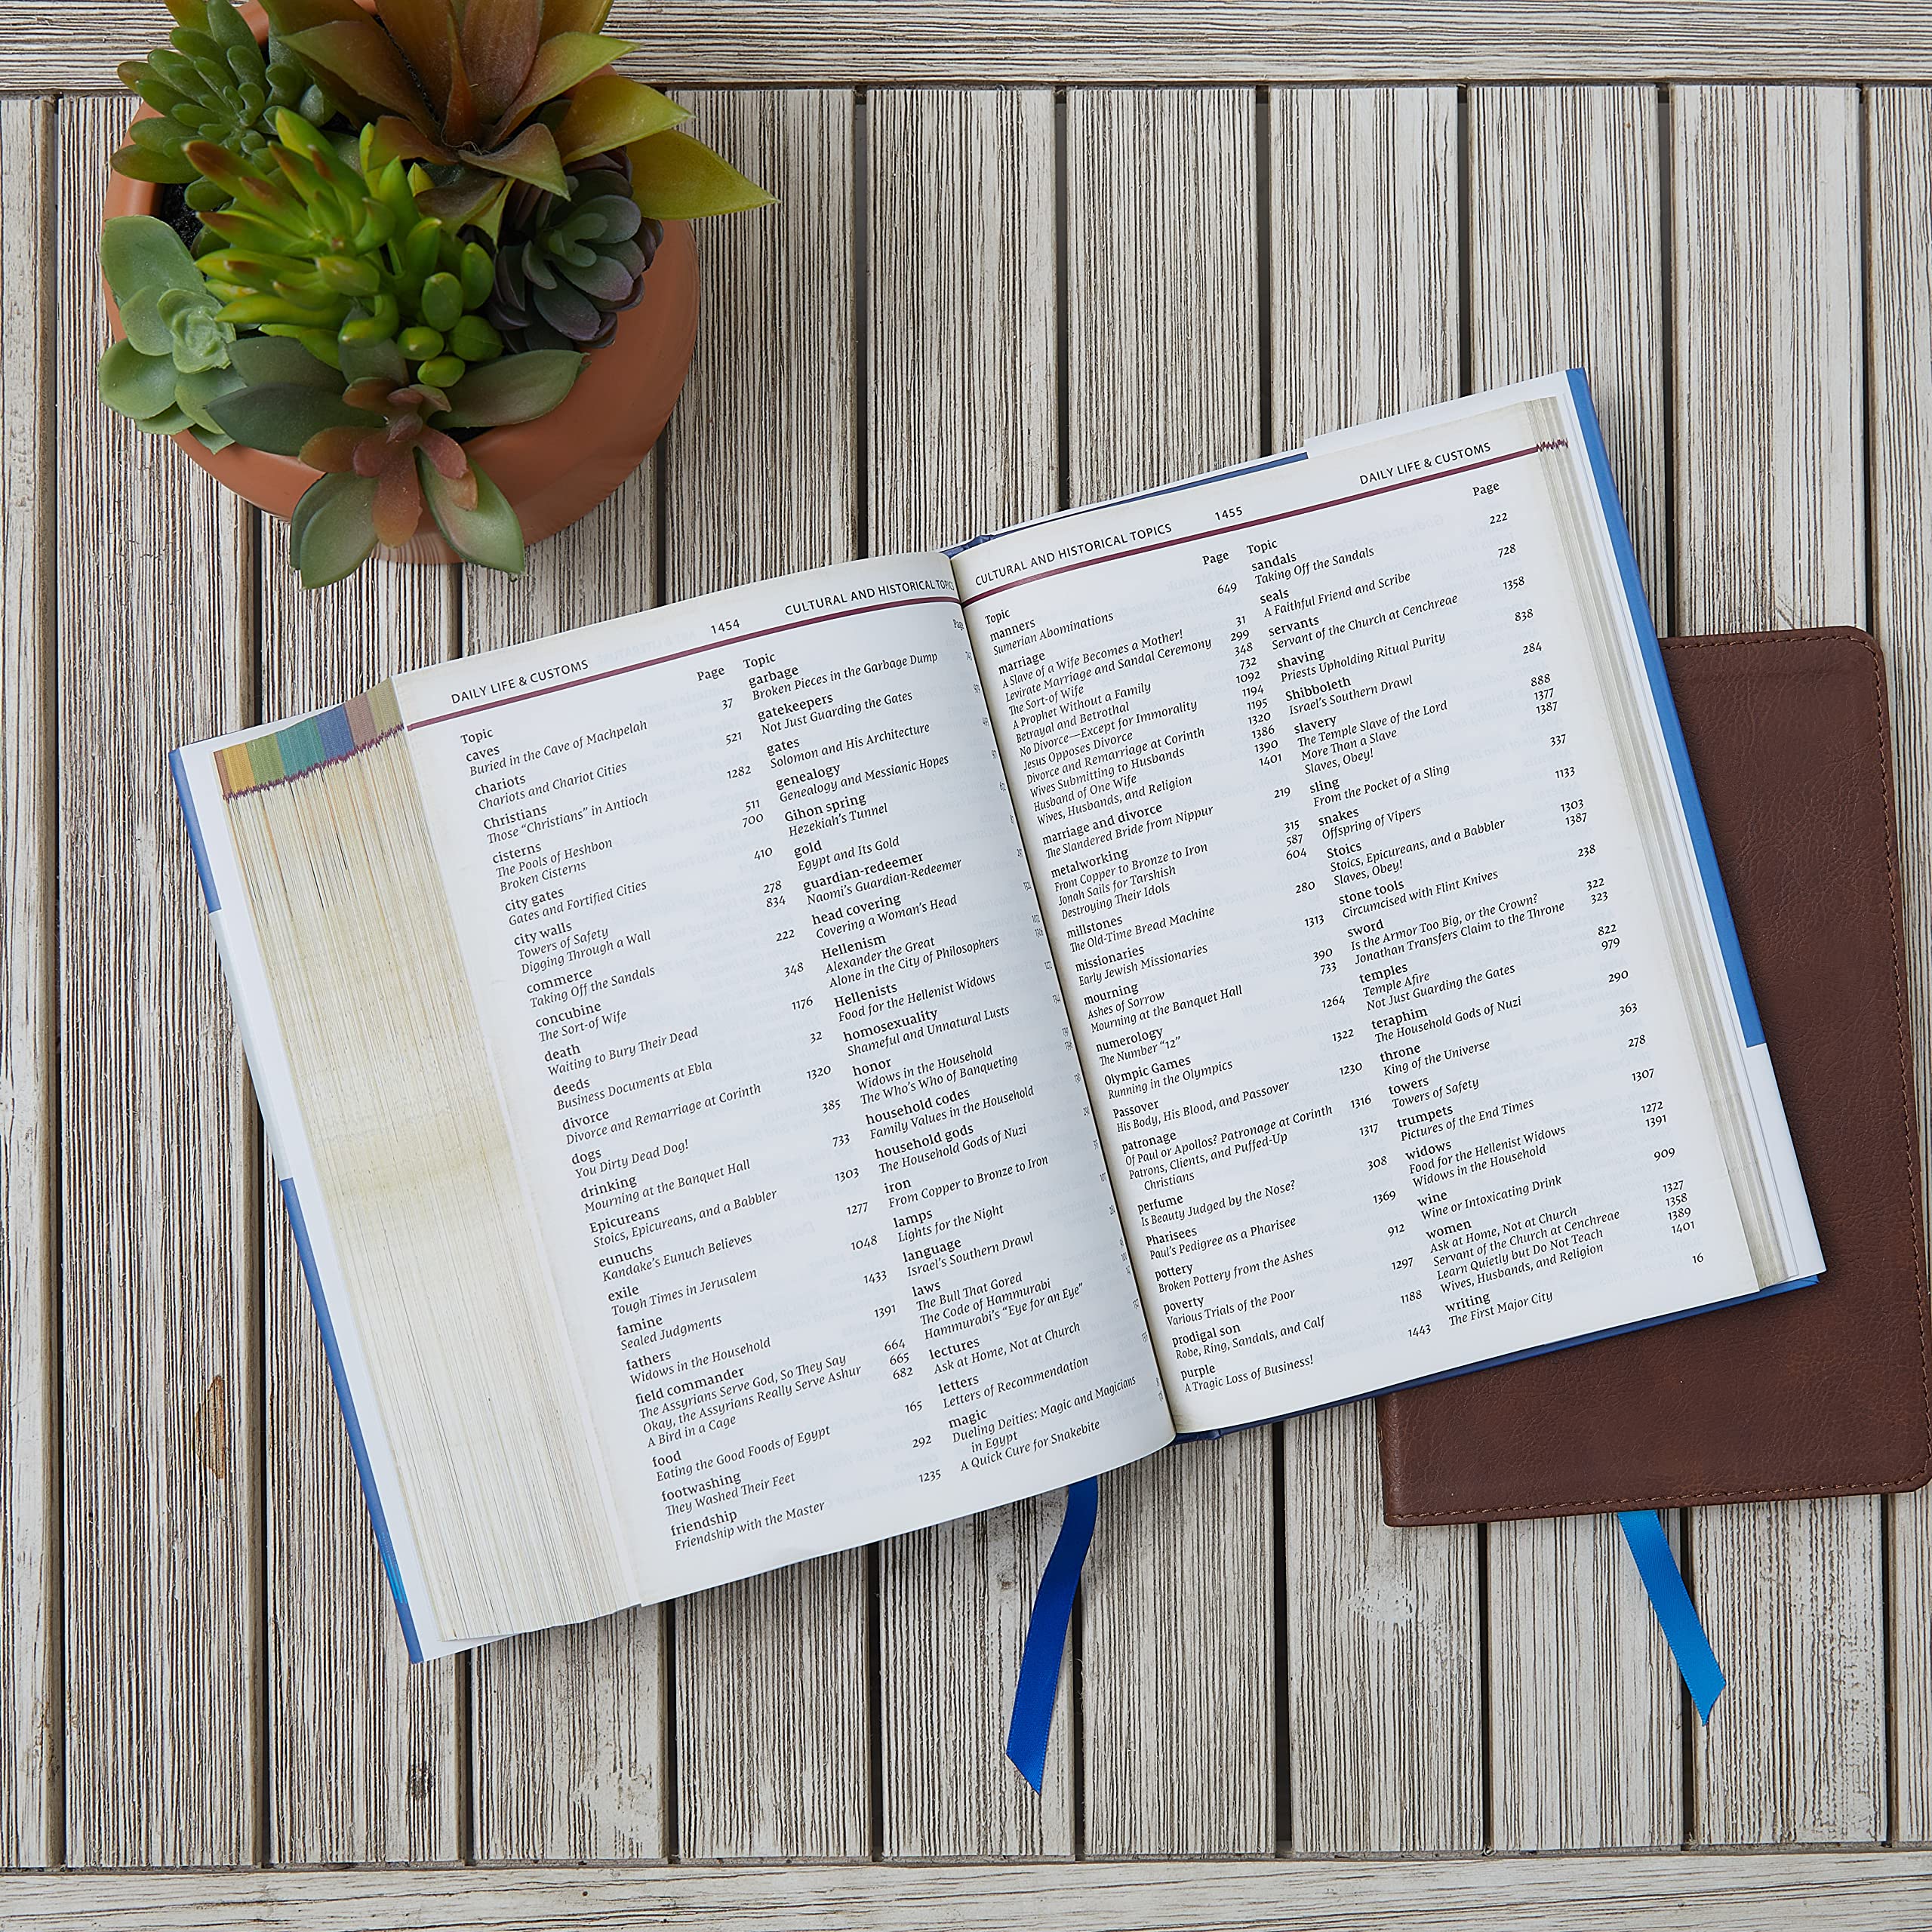 DAILY LIFE & CUSTOMS
1454
CULTURAL AND HISTORICAL TOPICS
Topic Page
caves
Buried in the Cave of Machpelah 37
chariots
Chariots and Chariot Cities 521
Christians
Those “Christians” in Antioch 1282
cisterns
The Pools of Heshbon 511
Broken Cisterns 700
city gates
Gates and Fortified Cities 410
city walls
Towers of Safety 278
Digging Through a Wall 834
commerce
Taking Off the Sandals 222
concubine
The Sort-of Wife 348
death
Waiting to Bury Their Dead 1176
deeds
Business Documents at Ebla 32
divorce
Divorce and Remarriage at Corinth 1320
dogs
You Dirty Dead Dog! 385
drinking
Mourning at the Banquet Hall 733
Epicureans
Stoics, Epicureans, and a Babbler 1303
eunuchs
Kandake’s Eunuch Believes 1277
exile
Tough Times in Jerusalem 1048
famine
Sealed Judgments 1433
fathers
Widows in the Household 1391
field commander
The Assyrians Serve God, So They Say 664
Okay, the Assyrians Really Serve Ashur 665
A Bird in a Cage 682
food
Eating the Good Foods of Egypt 165
footwashing
They Washed Their Feet 292
friendship
Friendship with the Master 1235
Topic Page
garbage
Broken Pieces in the Garbage Dump
gatekeepers
Not Just Guarding the Gates
gates
Solomon and His Architecture
genealogy
Genealogy and Messianic Hopes
Gihon spring
Hezekiah’s Tunnel
gold
Egypt and Its Gold
guardian-redeemer
Naomi’s Guardian-Redeemer
head covering
Covering a Woman’s Head
Hellenism
Alexander the Great
Alone in the City of Philosophers
Hellenists
Food for the Hellenist Widows
homosexuality
Shameful and Unnatural Lusts
honor
Widows in the Household
The Who’s Who of Banqueting
household codes
Family Values in the Household
household gods
The Household Gods of Nuzi
iron
From Copper to Bronze to Iron
lamps
Lights for the Night
language
Israel’s Southern Drawl
laws
The Bull That Gored
The Code of Hammurabi
Hammurabi’s “Eye for an Eye”
lectures
Ask at Home, Not at Church
letters
Letters of Recommendation
magic
Dueling Deities: Magic and Magicians
in Egypt
A Quick Cure for Snakebite
CULTURAL AND HISTORICAL TOPICS
1455
DAILY LIFE & CUSTOMS
Topic Page
manners
Sumerian Abominations 649
marriage
A Slave of a Wife Becomes a Mother! 31
Levirate Marriage and Sandal Ceremony 299
The Sort-of Wife 348
A Prophet Without a Family 732
Betrayal and Betrothal 1092
No Divorce—Except for Immorality 1194
Jesus Opposes Divorce 1195
Divorce and Remarriage at Corinth 1320
Wives Submitting to Husbands 1386
Husband of One Wife 1390
Wives, Husbands, and Religion 1401
marriage and divorce
The Slandered Bride from Nippur 219
metalworking
From Copper to Bronze to Iron 315
Jonah Sails for Tarshish 587
Destroying Their Idols 604
millstones
The Old-Time Bread Machine 280
missionaries
Early Jewish Missionaries 1313
mourning
Ashes of Sorrow 390
Mourning at the Banquet Hall 733
numerology
The Number “12” 1264
Olympic Games
Running in the Olympics 1322
Passover
His Body, His Blood, and Passover 1230
patronage
Of Paul or Apollos? Patronage at Corinth 1316
Patrons, Clients, and Puffed-Up
Christians 1317
perfume
Is Beauty Judged by the Nose? 308
Pharisees
Paul’s Pedigree as a Pharisee 1369
pottery
Broken Pottery from the Ashes 912
poverty
Various Trials of the Poor 1297
prodigal son
Robe, Ring, Sandals, and Calf 1188
purple
A Tragic Loss of Business! 1443
Topic Page
sandals
Taking Off the Sandals 222
seals
A Faithful Friend and Scribe 728
servants
Servant of the Church at Cenchreae 1358
shaving
Priests Upholding Ritual Purity 838
Shibboleth
Israel’s Southern Drawl 284
slavery
The Temple Slave of the Lord 888
More Than a Slave 1377
Slaves, Obey! 1387
sling
From the Pocket of a Sling 337
snakes
Offspring of Vipers 1133
Stoics
Stoics, Epicureans, and a Babbler 1303
Slaves, Obey! 1387
stone tools
Circumcised with Flint Knives 238
sword
Is the Armor Too Big, or the Crown? 322
Jonathan Transfers Claim to the Throne 323
temples
Temple Afire 822
Not Just Guarding the Gates 979
teraphim
The Household Gods of Nuzi 290
throne
King of the Universe 363
towers
Towers of Safety 278
trumpets
Pictures of the End Times 1307
widows
Food for the Hellenist Widows 1272
Widows in the Household 1391
wine
Wine or Intoxicating Drink 909
women
Ask at Home, Not at Church 1327
Servant of the Church at Cenchreae 1358
Learn Quietly but Do Not Teach 1389
Wives, Husbands, and Religion 1401
writing
The First Major City 16